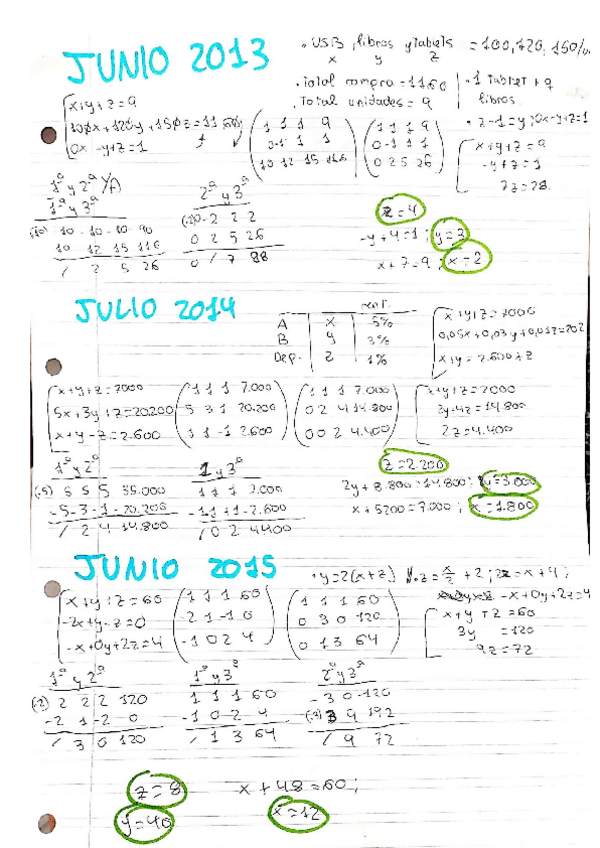 JUNIO 2013
• USB, libros y tablets = 100, 120, 150/u
x y z
• Total compra = 1160
• Total unidades = 9
• 1 tablet + q libros
• z-1=y; 0x-y+z=1
x+y+z=9
100x+120y+150z=1160
0x -y+z=1
1 1 1 9
0 -1 1 1
10 12 15 116
1 1 1 9
0 -1 1 1
0 2 5 26
x+y+z=9
-y+z=1
7z=28
1ª y 2ª
1ª y 3ª
2ª y 3ª
(-10) -10 -10 -10 -90
10 12 15 116
/ 2 5 26
(·2) 0 -2 2 2
0 2 5 26
0 / 7 28
z=4
-y+4=1; y=3
x+7=9; x=2
JULIO 2014
A x 5%
B y 3%
Dep. z 1%
x+y+z=7000
0,05x+0,03y+0,01z=202
x+y=2.600+z
x+y+z=7000
5x+3y+z=20.200
x+y-z=2.600
1 1 1 7.000
5 3 1 20.200
1 1 -1 2.600
1 1 1 7.000
0 2 4 14.800
0 0 2 4.400
x+y+z=7000
2y+4z=14.800
2z=4.400
1ª y 2ª
1 y 3ª
(·5) 5 5 5 35.000
-5 -3 -1 -20.200
/ 2 4 14.800
1 1 1 7.000
-1 -1 +1 -2.600
/ 0 2 4400
z=2.200
2y+8.800=14.800; y=3.000
x+5200=7.000; x=1.800
JUNIO 2015
• y=2(x+z)
z=x/2+2; 2z=x+4;
-x+0y+2z=4
x+y+z=60
-2x+y-2z=0
-x+0y+2z=4
1 1 1 60
-1 0 2 4
1 1 1 60
0 3 0 120
0 1 3 64
x+y+z=60
3y =120
9z=72
1ª y 2ª
1ª y 3ª
2ª y 3ª
(·2) 2 2 2 120
-2 1 -2 0
/ 3 0 120
1 1 1 60
-1 0 2 4
/ 1 3 64
-3 0 -120
(·3) 3 9 192
/ 9 72
z=8
x+48=60;
y=40
x=12